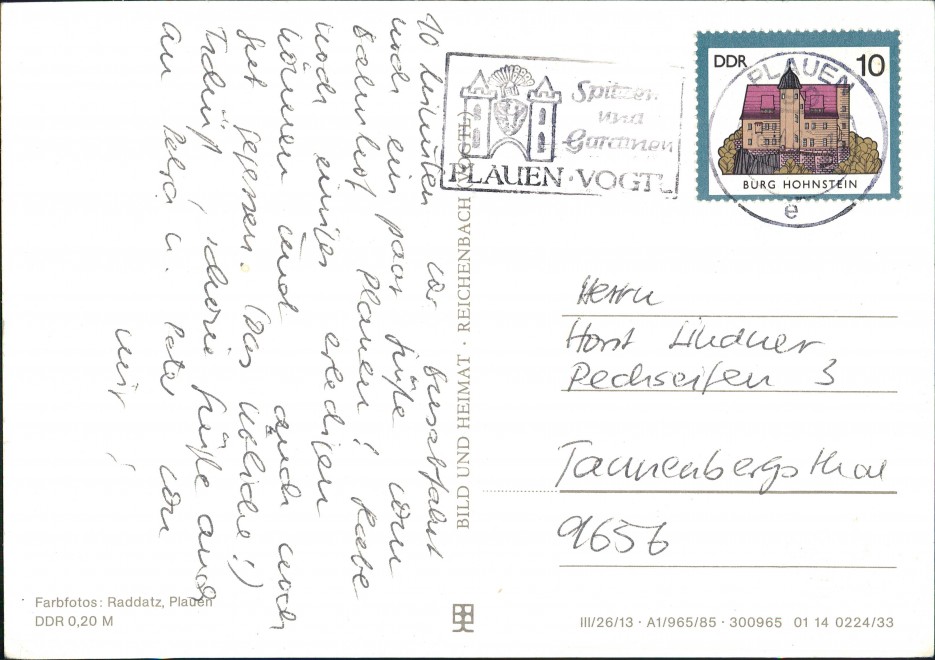 10 Minuten vor Busabfahrt
noch ein paar Grüße vom
Bahnhof Plauen! Habe
noch einiges erledigen
können und auch noch
gut gegessen. (Das Übliche!)
Tschüß, schöne Grüße auch
an u. Peter von
mir!
Spitzen
und
Gardinen
PLAUEN · VOGTL
DDR 10
BURG HOHNSTEIN
PLAUEN
e
Herrn
Horst Lindner
Pechseifen 3
Tannenbergsthal
9656
BILD UND HEIMAT · REICHENBACH (VOGTL)
Farbfotos: Raddatz, Plauen
DDR 0,20 M
III/26/13 · A1/965/85 · 300965 01 14 0224/33